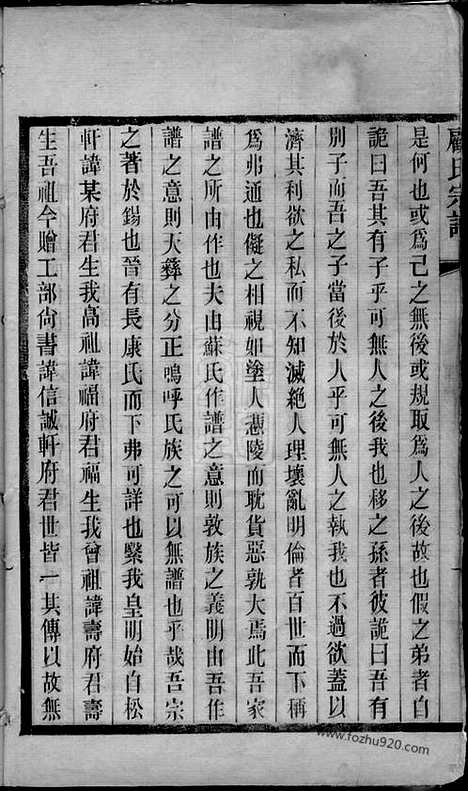 顧氏宗譜
是何也或爲己之無後或規取爲人之後故也假之弟者自
詭曰吾其有子乎可無人之後我也移之孫者彼詭曰吾有
別子而吾之子當後於人乎可無人之執我也不過欲蓋以
濟其利欲之私而不知滅絕人理壞亂明倫者百世而下稱
爲弗通也儗之相視如塗人憑陵而耽貨惡孰大焉此吾家
譜之所由作也夫由蘇氏作譜之意則敦族之義明由吾作
譜之意則天彝之分正嗚呼氏族之可以無譜也乎哉吾宗
之著於錫也晉有長康氏而下弗可詳也緊我皇明始自松
軒諱某府君生我高祖諱福府君福生我曾祖諱壽府君壽
生吾祖今贈工部尙書諱信誠軒府君世皆一其傳以故無
www.fozhu920.com